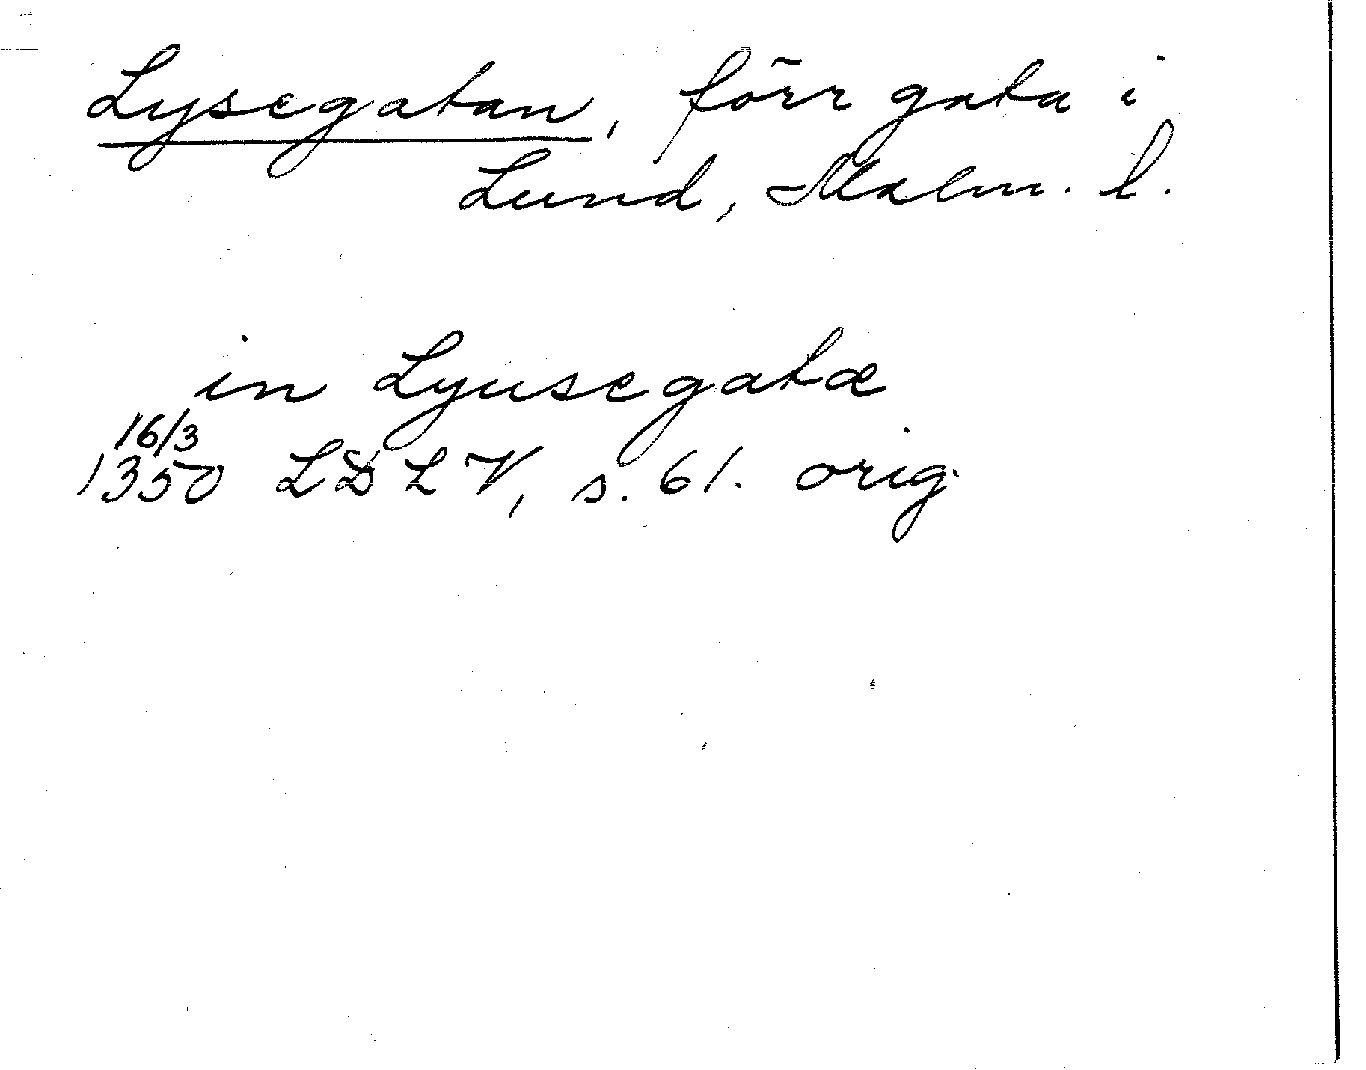 Lysegatan, förr gata i
Lund, Malm. l.
in Lyusegatæ
16/3
1350 LDLV, s. 61. orig.